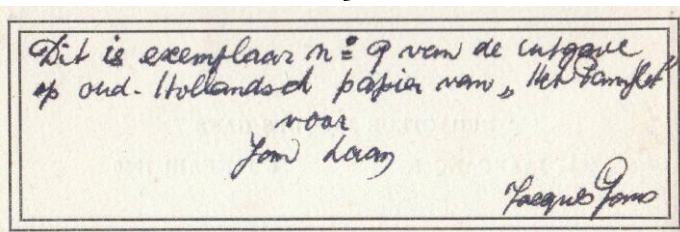 Dit is exemplaar no 9 van de uitgave
op oud-Hollandsch papier van „Het Pamflet"
voor
Jan Laan
Jacques Gans